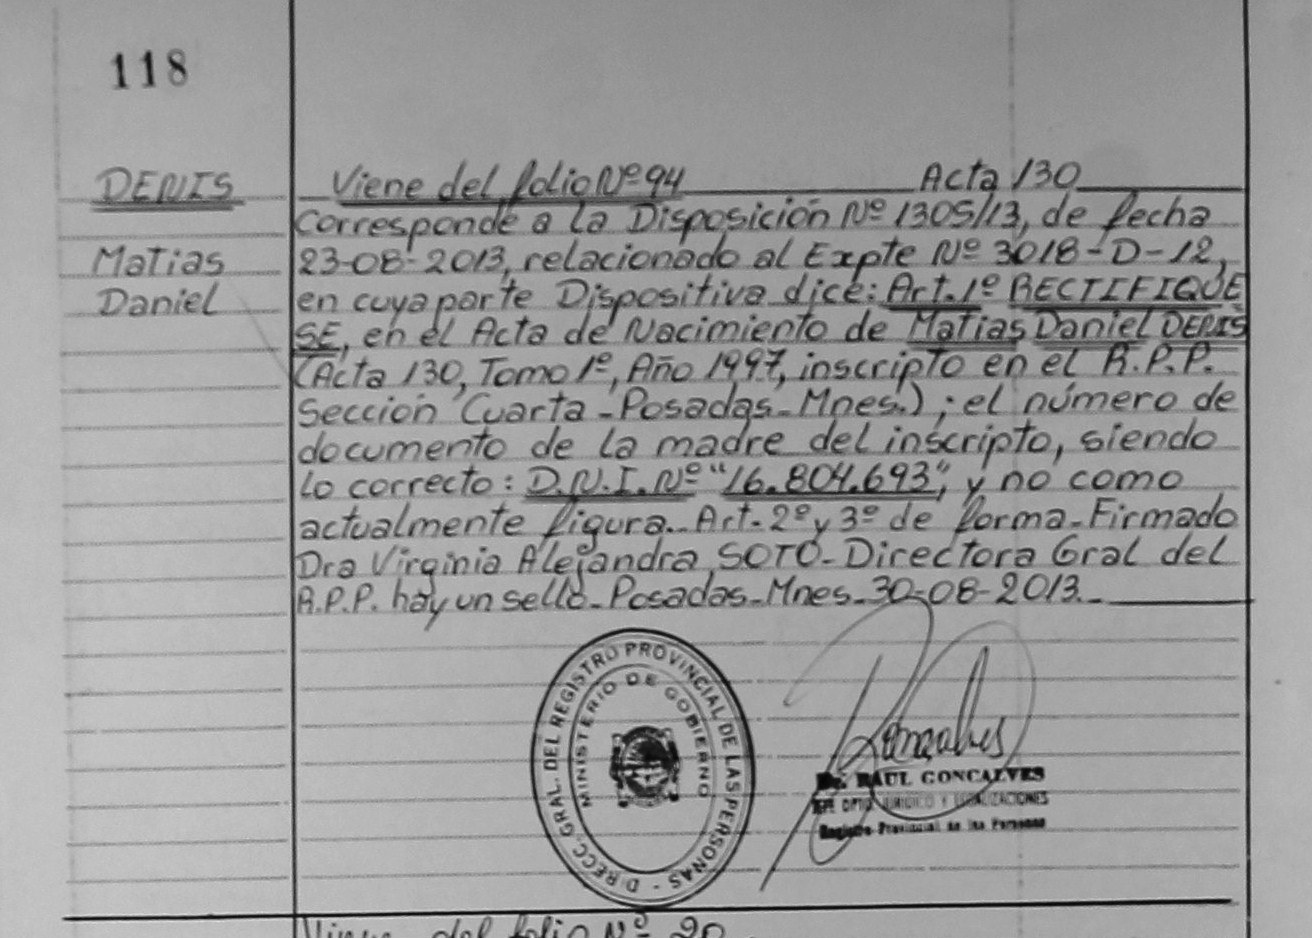 118
DENIS
Matias
Daniel
Viene del folio Nº 94 Acta 130
Corresponde a la Disposición Nº 1305/13, de fecha
23-08-2013, relacionado al Expte Nº 3018-D-12,
en cuya parte Dispositiva dice: Art. 1º RECTIFIQUE
SE, en el Acta de Nacimiento de Matias Daniel DENIS
(Acta 130, Tomo 1º, Año 1997, inscripto en el R.P.P.
Sección Cuarta - Posadas - Mnes.); el número de
documento de la madre del inscripto, siendo
lo correcto: D.N.I. Nº "16.804.693", y no como
actualmente figura.. Art. 2º y 3º de forma - Firmado
Dra Virginia Alejandra SOTO - Directora Gral del
R.P.P. hay un sello - Posadas - Mnes. 30-08-2013.-
DIRECC. GRAL. DEL REGISTRO PROVINCIAL DE LAS PERSONAS -
MINISTERIO DE GOBIERNO
Goncalves
Dr. RAUL GONCALVES
JEFE DPTO. JURIDICO Y LEGALIZACIONES
Registro Provincial de las Personas
Viene del folio Nº 90